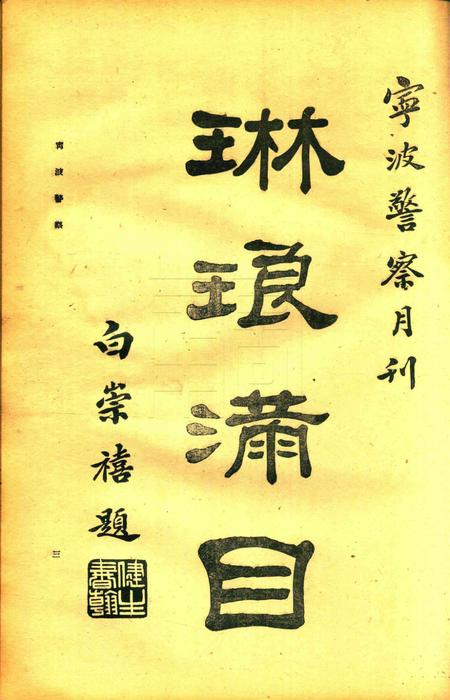 寧波警察月刊
琳琅滿目
白崇禧題
健生書翰
寧波警察
三